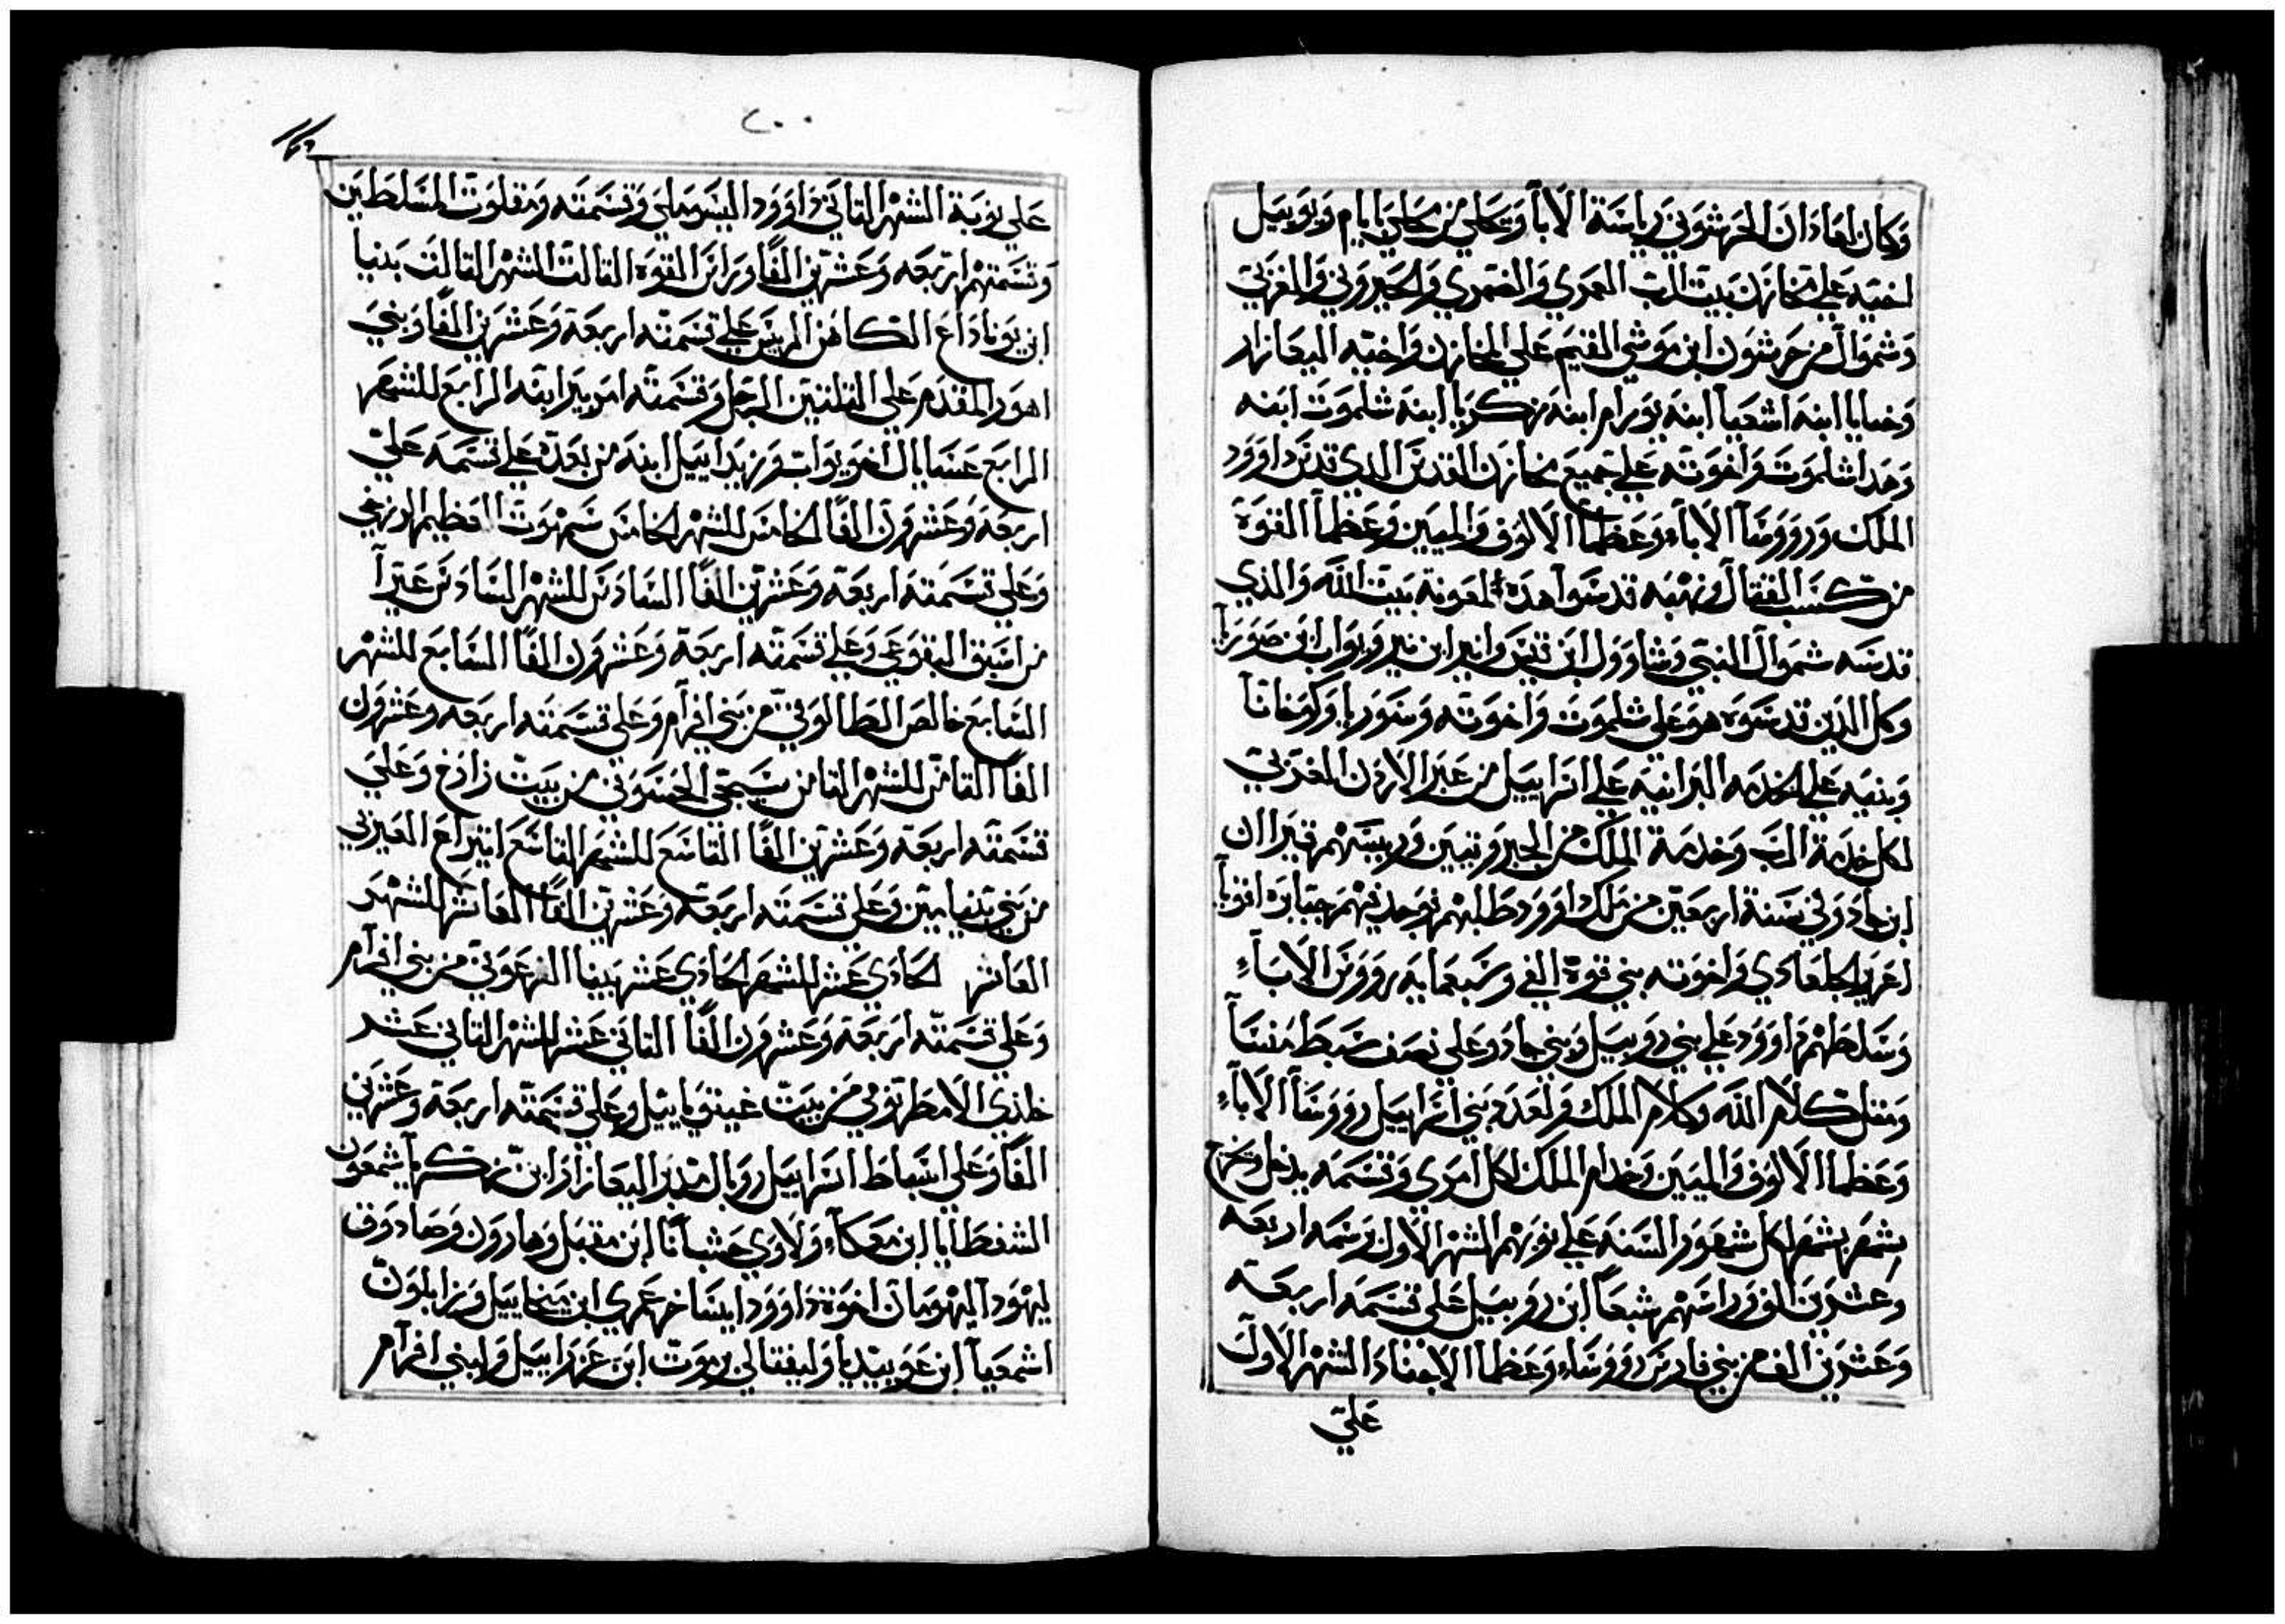 وكان لعادان الجرشوني رياسة الابآ وتعالي من محلي يا يام ويوييل
اخيه علي مخازن بيت الرب العمري والقمري والحبروني والغزيي
وشموآل من جرشون ابن موشي القيم علي المخازن واخيه اليعازار
وخيايا ابنه اشعيآ ابنه يورام ابنه زكريا ابنه شلموت ابنه
وهذا شلموت واخوته علي جميع مخازن القدس الذي قدس داوود
الملك وروووسآ الاباء وعظمآ الالوف والميين وعظمآ القوة
من كسب القتال ونهبه قدسوا هذه لمعونة بيت الله والذي
قدسه شموآل النبي وشاوول ابن قيس وانير ابن نير ويواب ابن صوريا
وكل الذين قدسوه هو علي شلموت واخوته وسوريا وكوخانآ
وبنيه علي الخدمه البرانيه علي اسراييل من عبر الاردن الغربي
لكل خدمة الرب وخدمة الملك من الحبرونيين ورييسهم قيرا ان
ابن جاد وفي سنة اربعين من ملك داوود طلبهم فوجد فيهم جبابره اقويا
اعزير الجلعادي واخوته بني قوة الفي وسبعمايه رووس الاباء
وسلطهم داوود علي بني روبييل وبني جاد وعلي نصف سبط منسآ
ومثل كلام الله وكلام الملك ولعدد بني اسراييل روووسآ الاباء
وعظما الالوف والميين وخدام الملك لكل امري وقسمه يدخل ويخرج
بشهر بشهر لكل شهور السنه علي نوبهم الشهر الاول برسمه اربعه
وعشرين الف وراسهم شبعآ ابن روبييل علي قسمه اربعة
وعشرين الف من بني فارس روووساء وعظما الاجناد الشهر الاول
علي
٢٠٠
علي نوبة الشهر الثاني داوود اليسوملي وقسمته ومقلوت المسلطين
وقسمتهم اربعه وعشرين الفًا وراس القوة الثالث الشهر الثالث بنيا
ابن يوناداع الكاهن الرييس علي قسمته اربعة وعشرين الفًا وبني
اهور المقدم علي الثلثين الرجل وقسمته اميرير ابنه الرابع للشهر
الرابع عسايال اخو يواب وزبداييل ابنه من بعده علي قسمه علي
اربعة وعشرون الفًا الخامس للشهر الخامس سمهوت العظيم الازرعي
وعلي قسمته اربعة وعشرين الفًا السادس للشهر السادس عيرآ
من اسبق التقوعي وعلي قسمته اربعة وعشرون الفًا السابع للشهر
السابع خالص الطالوني من بني افرآم وعلي قسمته اربعه وعشرون
الفًا الثامن للشهر الثامن سبحي الحسوني من بيت زادخ وعلي
قسمته اربعة وعشرين الفًا التاسع للشهر التاسع ابيزاع العيزي
من بني بنيامين وعلي قسمته اربعة وعشرين الفًا العاشر للشهر
العاشر الحادي عشر للشهر الحادي عشر بينا الزعوني من بني افرآم
وعلي قسمته اربعة وعشرون الفًا الثاني عشر للشهر الثاني عشر
خلذي الامطرتوفي من بيت غيثوياييل وعلي قسمته اربعة وعشرين
الفًا وعلي اسباط اسراييل روبال مدبر اليعازار ابن زكري شمعون
الشفطايا ابن معكآ ولاوي حشبآنا ابن مقبل وهارون وصادوق
ليهودا اليهومان اخوة داوود ايساخر عمري ابن ميخاييل وزابلون
اشمعيآ ابن عوبيديا وليفتالي يرموت ابن عزراييل ولبني افرآم